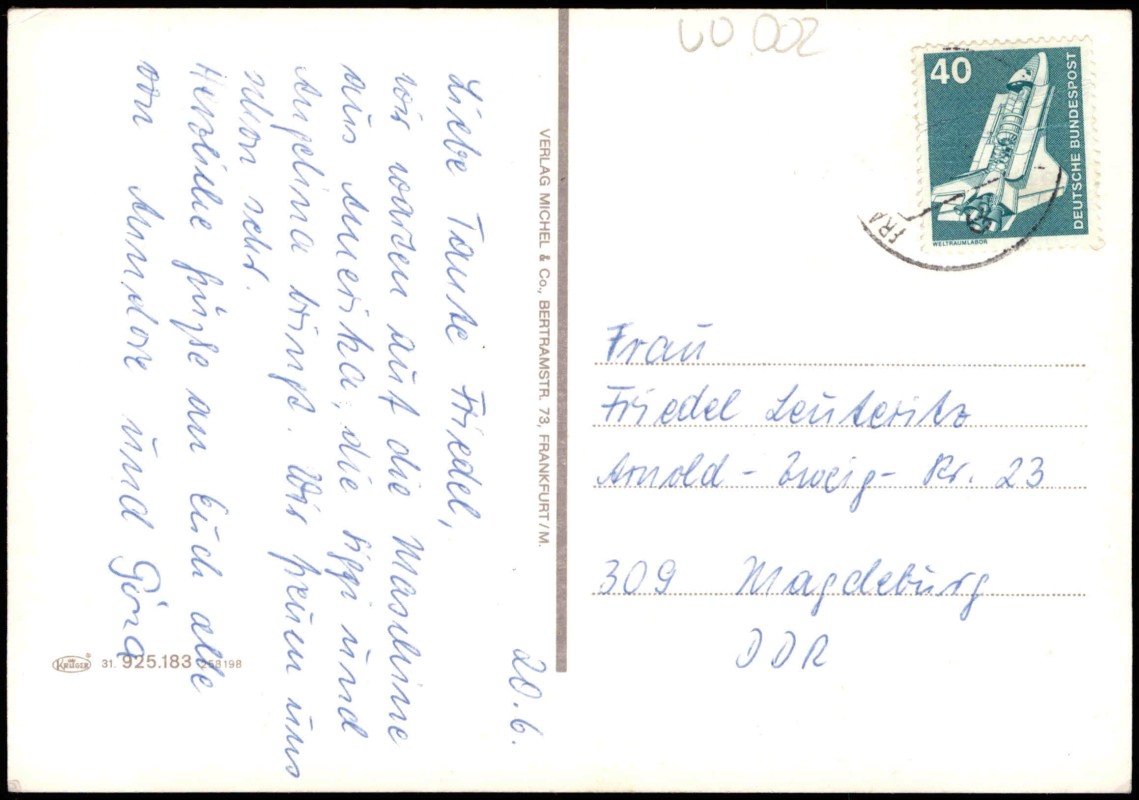 20.6.
Liebe Tante Friedel,
wir warten auf die Maschine
aus Amerika, die Siggi und
Angelina bringt. Wir freuen uns
schon sehr.
Herzliche Grüße an Euch alle
von Anndore und
VERLAG MICHEL & Co., BERTRAMSTR. 73, FRANKFURT/M.
KRÜGER
31. 925.183 268198
UO 002
40
DEUTSCHE BUNDESPOST
WELTRAUMLABOR
FRA
Frau
Friedel Leuteritz
Arnold-Zweig-Str. 23
309 Magdeburg
DDR